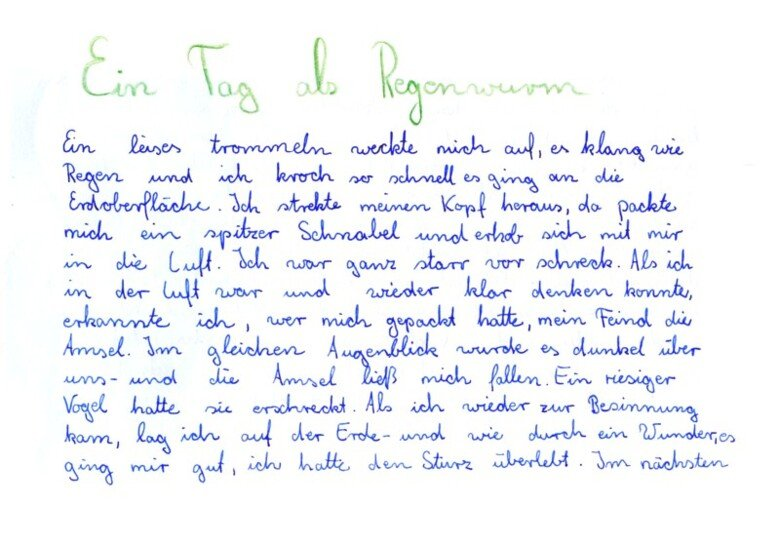 Ein Tag als Regenwurm
Ein leises trommeln weckte mich auf, es klang wie
Regen und ich kroch so schnell es ging an die
Erdoberfläche. Ich strekte meinen Kopf heraus, da packte
mich ein spitzer Schnabel und erhob sich mit mir
in die Luft. Ich war ganz starr vor schreck. Als ich
in der Luft war und wieder klar denken konnte,
erkannte ich, wer mich gepackt hatte, mein Feind die
Amsel. Im gleichen Augenblick wurde es dunkel über
uns- und die Amsel ließ mich fallen. Ein riesiger
Vogel hatte sie erschreckt. Als ich wieder zur Besinnung
kam, lag ich auf der Erde- und wie durch ein Wunder, es
ging mir gut, ich hatte den Sturz überlebt. Im nächsten